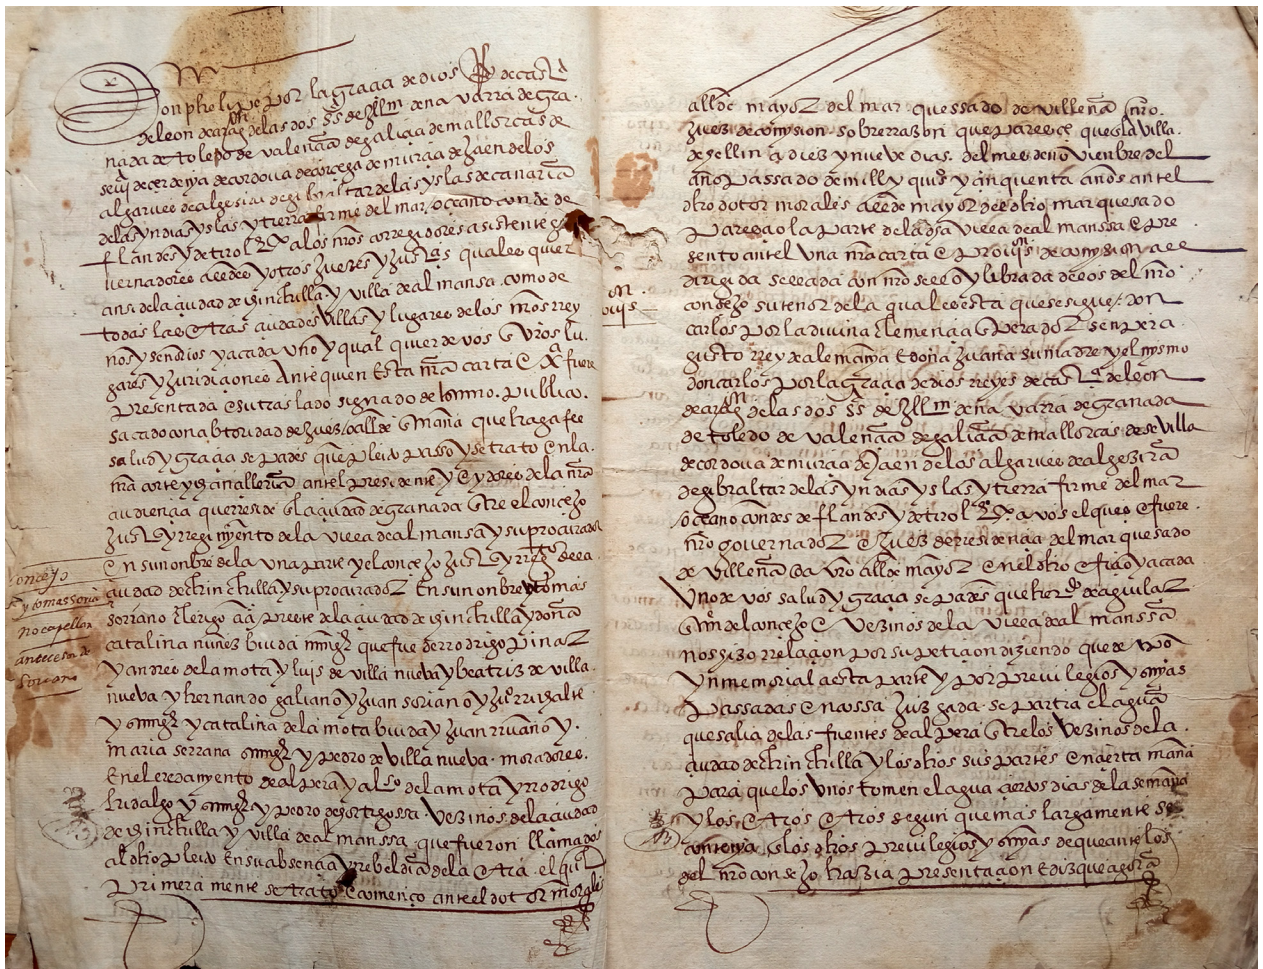 Don phelipe por la graçia de dios Rey de castª
de leon de arag̃ de las dos s̃s de Jll̃m de na varra de gra
nada de toledo de valençia de galiçia de mallorcas de
sevj̃ de çerdeña de cordova de corçega de murçia de Jaen de los
algarves de algezira de gibraltar de las yslas de canaria
de las yndias yslas y tierra firme del mar oçeano conde de
flandes y de tirol etcª a los nr̃os corregidores asistente go
vernadores allcldes y otros Juezes y Justªs quales quier
ansi de la çiudad de chinchilla y villa de almansa como de
todas las otras çiudades villas y lugares de los nr̃os rey
nos y señorios y a cada vno y qual quier de vos en vr̃os lu
gares y Juridiçiones Ante quien Esta nr̃a carta
presentada o su tras lado signado de scriuano publico
sacado con abtoridad de Juez o allde en manã que haga fee
salud y graçia sepades que pleito paso y se trato en la
nr̃a corte y chançilleria antel presidente y oydores de la nr̃a
audiençia que rreside en la çiudad de granada entre el conçejo
Justª y rregimyento de la villa de almansa y su procurador
en su nonbre de la vna parte y el conçejo Justª y rregº de la
çiudad de chinchilla y su procurador En su nonbre y tomas
soriano clerigo de la çiudad de chinchilla y doña
catalina nuñez biuda muger que fue de rrodrigo pinar
y andres de la mota y luis de villa nueva y beatriz de villa
nueva y hernando galiano y Juan soriano y
y catalina de la mota biuda y Juan rruano y
maria serrana y pedro de villa nueva moradores
En el eredamyento de alpera y alº de la mota y rrodrigo
hidalgo y pedro de hortigossa vezinos de la çiudad
de chinchilla y villa de almanssa que fueron llamados
al dho pleito En su absençia y rrebeldia de la otra el qual
primera mente se trato e començo ante el dotor morales
conçejo
y tomas soria
no capellan
soriano
allde mayor del mar quessado de villena nr̃o
Juez de comysion sobre rrazon que pareçe que en la villa
de hellin a diez y nueve dias del mes de novienbre del
año passado de mill y quis y çinquenta años antel
dho dotor morales allde mayor del dho marquesado
pareçio la parte de la dha villa de almanssa e pre
sento ante el vna nr̃a carta e provisõn de comysion a el
dirigida sellada con nr̃o sello y librada de los del nr̃o
consejo su tenor de la qual es esta que se sigue don
carlos por la divina clemençia enperador senper a
gusto rrey de alemania e doña Juana su madre y el mysmo
don carlos por la graçia de dios reyes de castª de leon
de aragõn de las dos s̃s de Jll̃m de na varra de granada
de toledo de valençia de galiçia de mallorcas de sevilla
de cordova de murçia de Jaen de los algarves de algezira
de gibraltar de las yndias yslas y tierra firme del mar
oçeano condes de flandes y de tirol etcª a vos el que es o fuere
nr̃o governador o Juez de rresidençia del marquesado
de villena o a vr̃o allde mayor en el dho ofiçio y a cada
vno de vos salud y graçia sepades que de aguilar
en nr̃e del conçejo e vezinos de la villa de almanssa
nos hizo rrelaçion por su petiçion diziendo que de tpo
ynmemorial a esta parte y por previlegios y
passadas en cossa Juzgada se partia el agua
que salia de las fuentes de alpera entre los vezinos de la
çiudad de chinchilla y los dhos sus partes en çierta manã
para que los vnos tomen el agua çiertos dias de la semana
y los otros otros segun que mas largamente se
contenya en los dhos previlegios y de que ante los
del nr̃o consejo hazia presentaçion e diz que agora